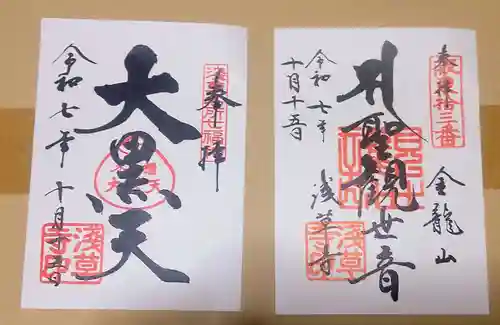 奉拝
大黒天
令和七年十月十五日
浅草名所七福神
浅草寺印
奉拝
坂東拾三番
金龍山
聖観世音
浅草寺
令和七年
十月十五日
浅草寺印